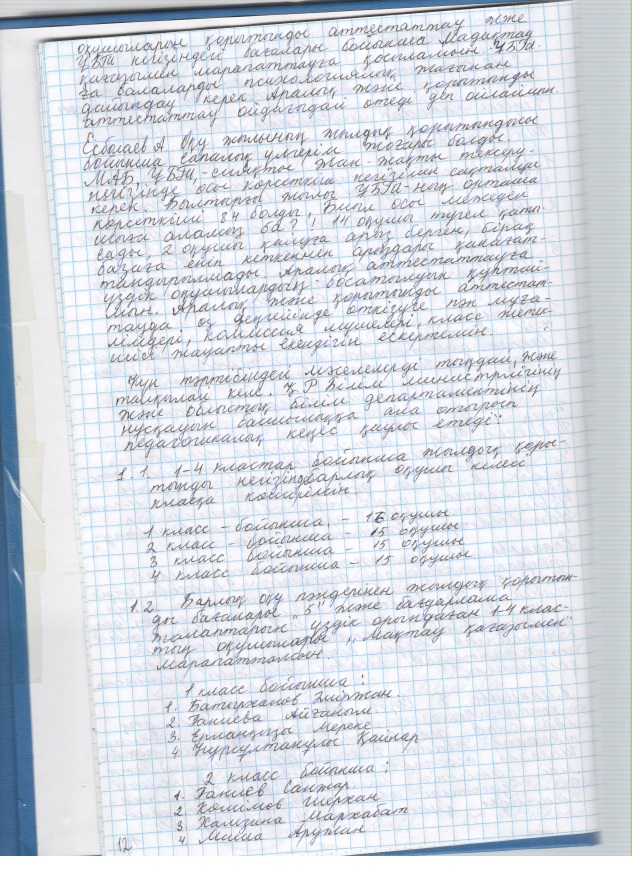 оқушыларын қорытынды аттестаттау және
ҰБТ негізіндегі бағалары бойынша мадақтау
қағазымен марапаттауға қосыламын. ҰБТ-
ға балаларды психологиялық жағынан
дайындау керек. Аралық және қорытынды
аттестаттау ойдағыдай өтеді деп ойлаймын.
Есболаев А. Оқу жылының жылдық қорытындысы
бойынша сапалық үлгерім жоғары болды.
МАБ, ҰБТ, -сияқты жан-жақты тексеру-
негізінде осы көрсеткіш негізінен сақталуы
керек. Былтырғы жылы ҰБТ-ның орташа
көрсеткіші 84 болды, Биыл осы межеден
шыға аламыз ба? 14 оқушы түгел қаты-
сады, 2 оқушы қалуға арыз берген, бірақ
базаға еніп кеткеннен арыздары қанағат-
тандырылмады. Аралық аттестаттауға
үздік оқушылардың босатылуын құптай-
мын. Аралық және қорытынды аттестат-
тауда өз деңгейінде өткізуге пән мұға-
лімдері, комиссия мүшелері, класс жетек-
шісі жауапты екендігін ескертемін.
Күн тәртібіндегі мәселелерді тыңдай, және
талқылай келе. Қ Р Білім министрлігінің
және облыстық білім департаментінің
нұсқауын басшылыққа ала отырып
педагогикалық кеңес қаулы етеді:
1. 1. 1-4 кластар бойынша жылдық қоры-
тынды негізінде барлық оқушы келесі
класқа көшірілсін.
1 класс - бойынша, - 16 оқушы
2 класс - бойынша - 15 оқушы
3 класс бойынша - 15 оқушы
4 класс бойынша - 15 оқушы
1.2 Барлық оқу пәндерінен жылдық қорытын-
ды бағалары „5" және бағдарлама
талаптарын үздік орындаған 1-4 клас-
тың оқушылары „Мақтау қағазымен"
марапатталсын.
1 класс бойынша:
1. Батырханов
2. Ғаниева Айғаным
3. Ерланқызы Мереке
4 Нұрсұлтанұлы Қайнар
2 класс бойынша:
1. Ғаниев Санжар
2. Қошимов Шерхан
3 Хамзина Мархабат
4 Аружан
12